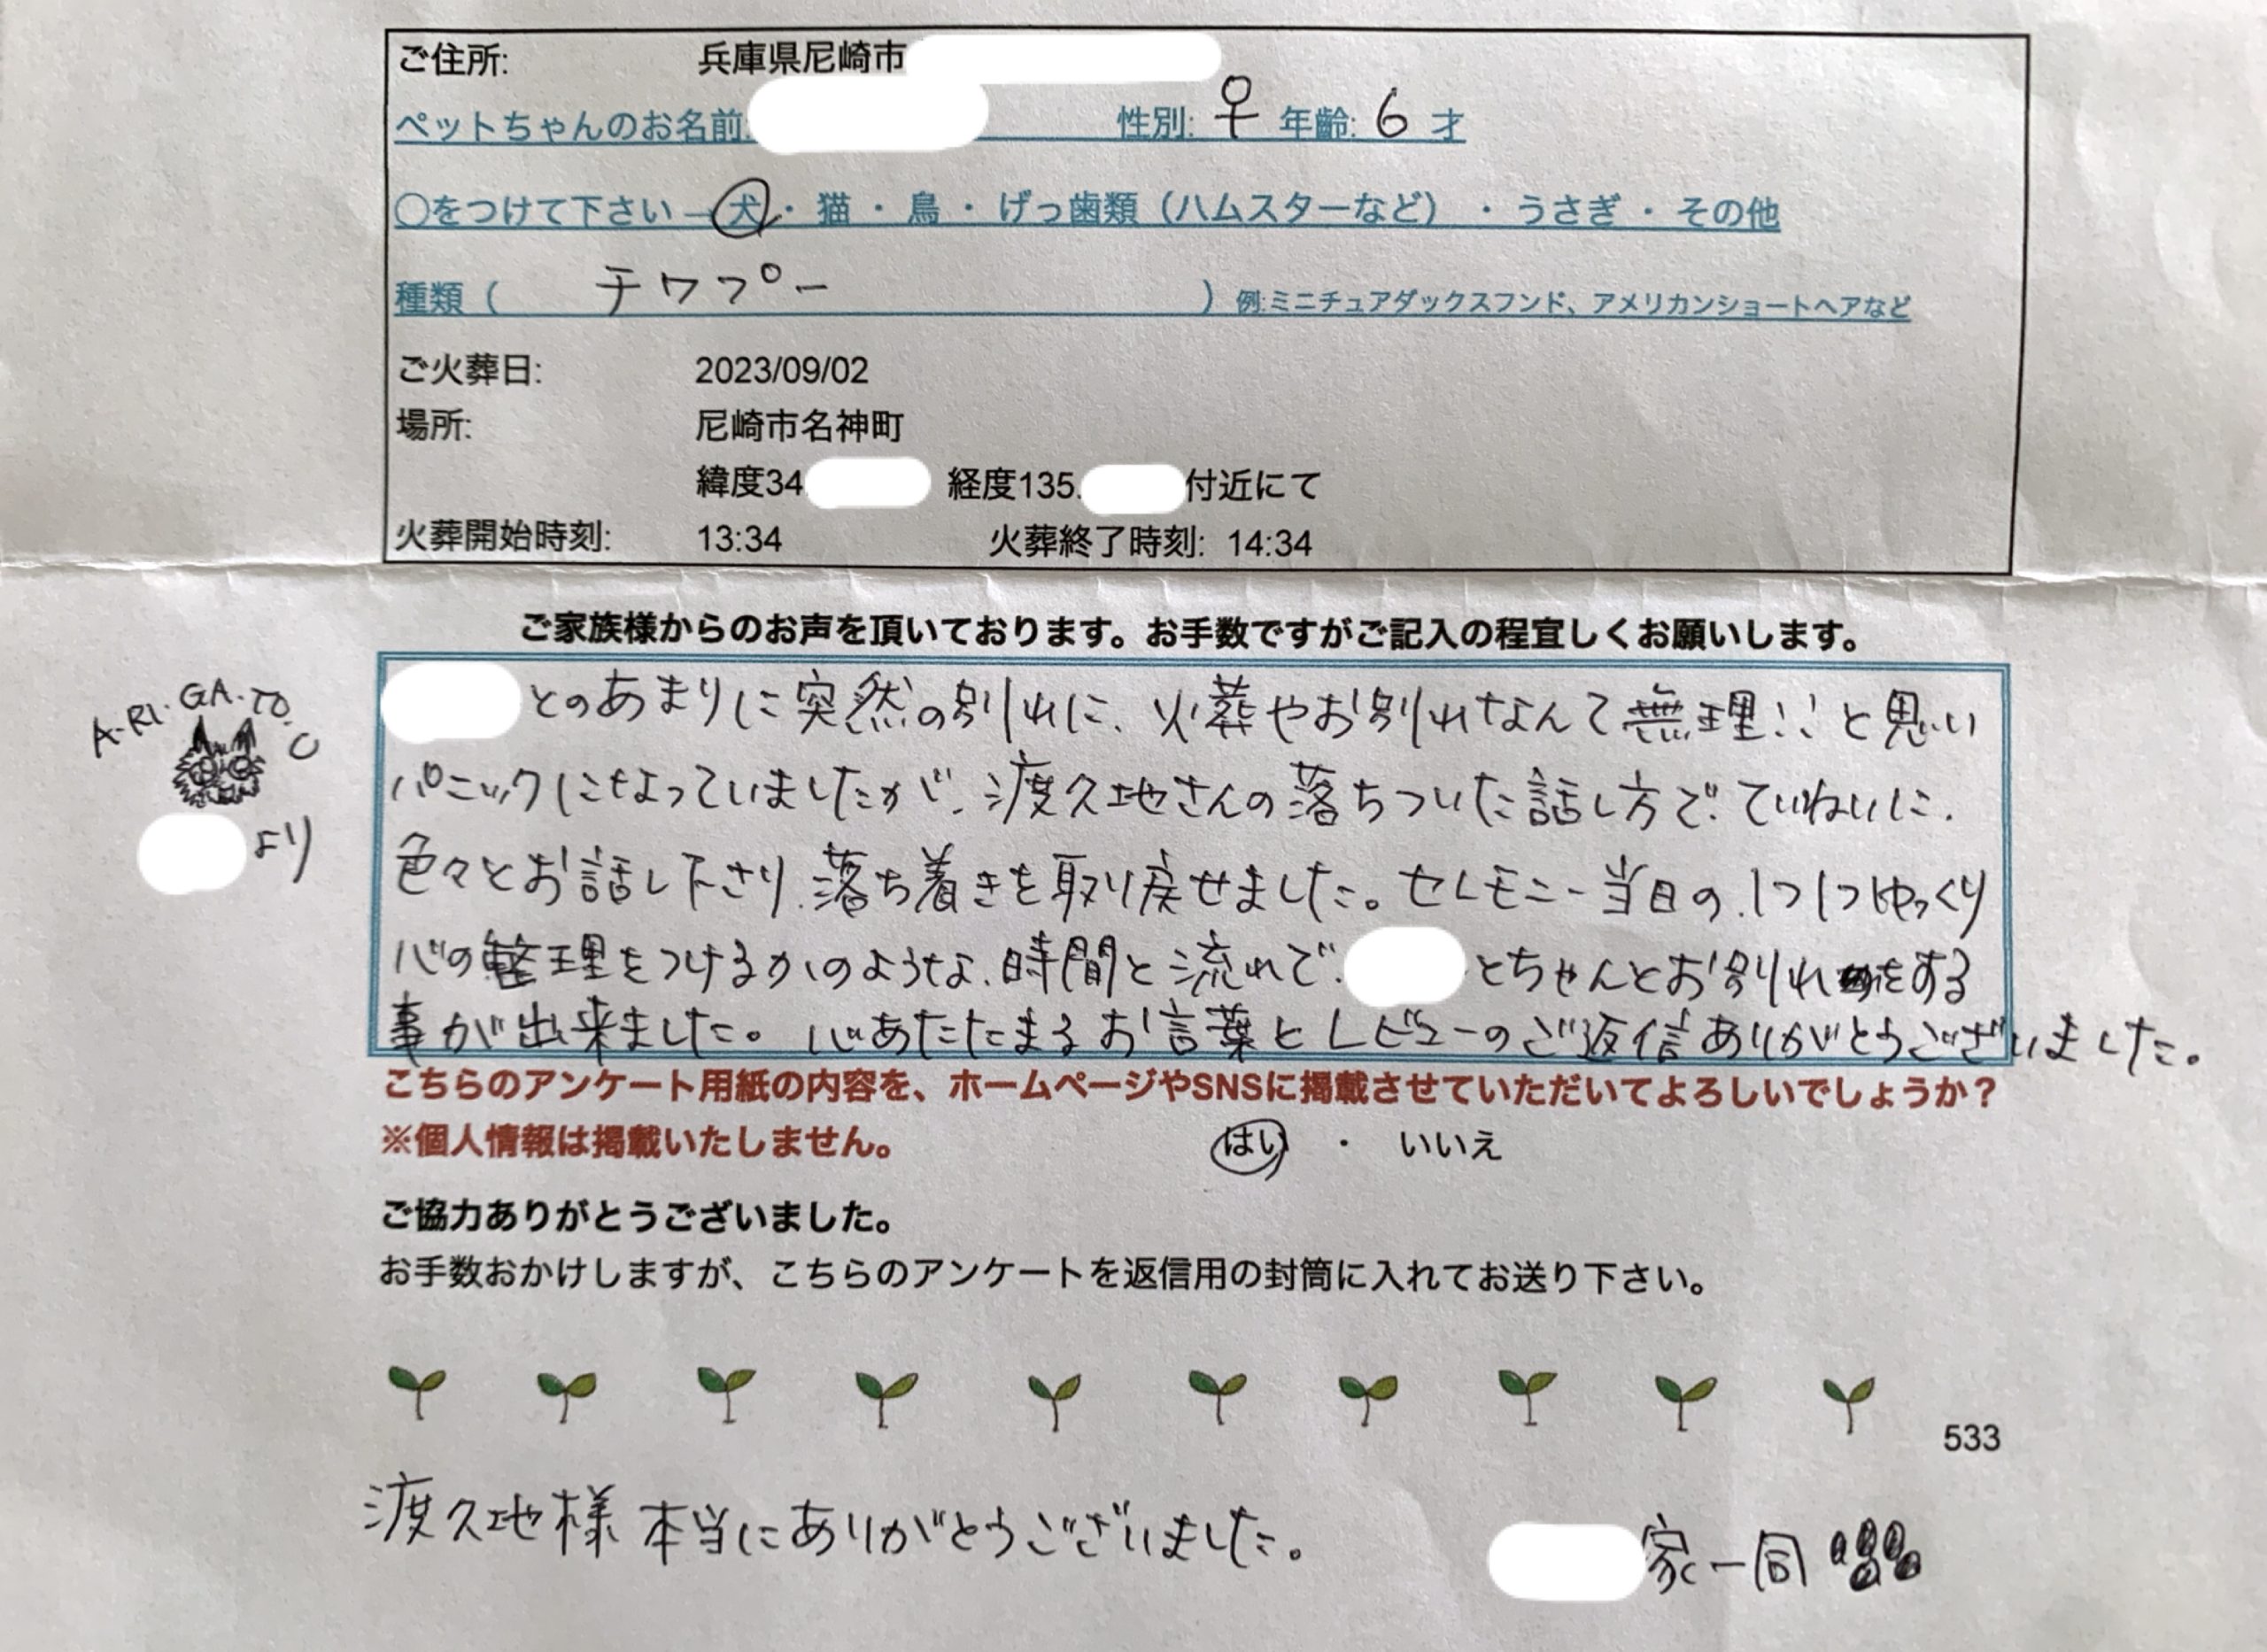 ご住所: 兵庫県尼崎市
ペットちゃんのお名前: 性別: ♀ 年齢: 6 才
○をつけて下さい→犬・猫・鳥・げっ歯類（ハムスターなど）・うさぎ・その他
種類（ チワプー ）例:ミニチュアダックスフンド、アメリカンショートヘアなど
ご火葬日: 2023/09/02
場所: 尼崎市名神町
緯度34 経度135. 付近にて
火葬開始時刻: 13:34 火葬終了時刻: 14:34
ご家族様からのお声を頂いております。お手数ですがご記入の程宜しくお願いします。
とのあまりに突然の別れに、火葬やお別れなんて無理!!と思い
パニックになっていましたが、渡久地さんの落ちついた話し方で、ていねいに、
色々とお話し下さり、落ち着きを取り戻せました。セレモニー当日の、1つ1つゆっくり
心の整理をつけるかのような、時間と流れで、とちゃんとお別れをする
事が出来ました。心あたたまるお言葉とレビューのご返信ありがとうございました。
A・RI・GA・TO・U
より
こちらのアンケート用紙の内容を、ホームページやSNSに掲載させていただいてよろしいでしょうか？
※個人情報は掲載いたしません。 はい ・ いいえ
ご協力ありがとうございました。
お手数おかけしますが、こちらのアンケートを返信用の封筒に入れてお送り下さい。
533
渡久地様 本当にありがとうございました。
家一同